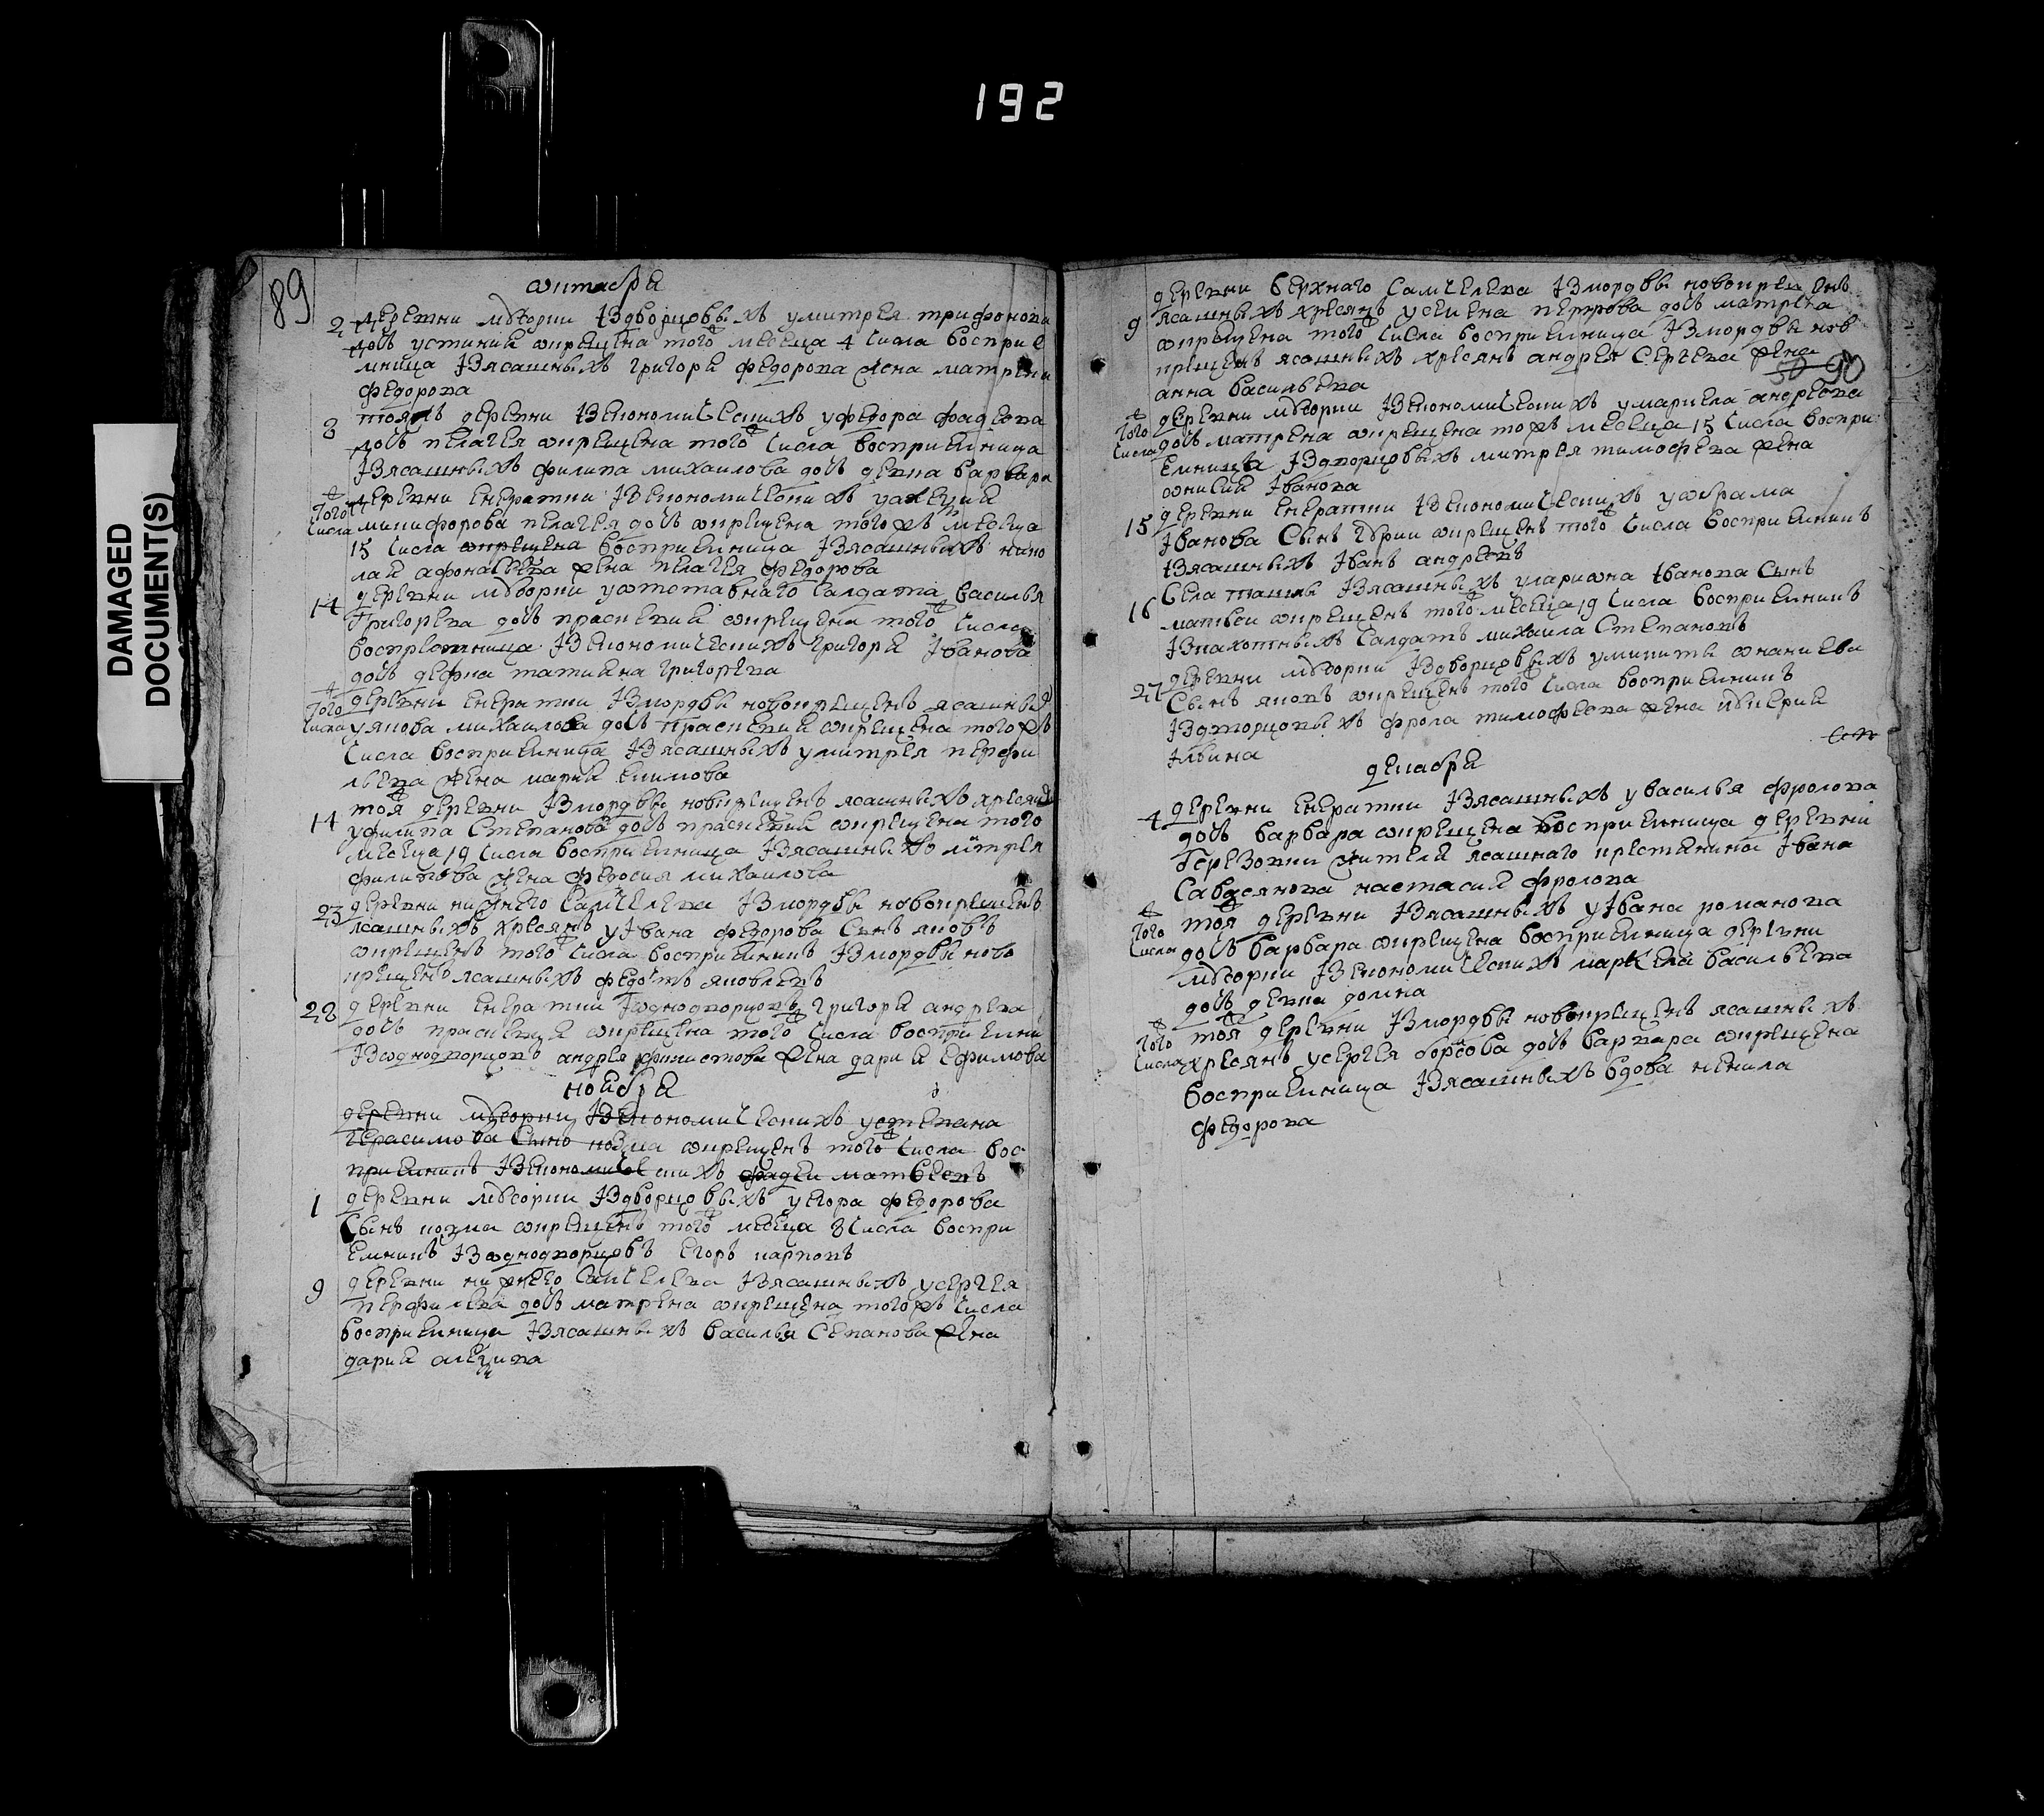 192
DAMAGED
DOCUMENT(S)
89
октября
2 деревни мѣсорки издворцовыхъ умитрея трифонова
дочь устиния окрещена того ж месеца 4 числа восприе
мница изясашныхъ григоря федорова жена матрена
федорова
3 тояжъ деревни изекономическихъ уфедора фадеева
дочь пелагея окрещена того ж числа восприемница
изясашныхъ филипа михаилова дочь девка варвара
того ж деревни кератни изекономическихъ уалексия
числа никифорова пелагея дочь окрещена того жъ месеца
15 числа окрещена восприемница изясашныхъ нико
лая афонасьева жена пелагея федорова
14 деревни мѣсорки уотставнаго салдата василья
григорева дочь праскевия окрещена того ж числа
восприемница изекономическихъ григоря иванова
дочь девка татияна григорева
того ж деревни кератни измордвы новокрещенъ ясашных
числа уякова михаилова дочь праскевия окрещена того жъ
числа восприемница изясашныхъ умитрея перфи
льева жена мария екимова
14 тоя ж деревни измордвы новокрещенъ ясашныхъ хресян
уфилипа степанова дочь праскевия окрещена того
месеца 19 числа восприемница изясашныхъ митрея
филипова жена федосия михаилова
23 деревни нижнего санчелеева измордвы новокрещенъ
ясашныхъ хресянъ уивана федорова сынъ яковъ
окрещенъ того ж числа восприемникъ измордвы ново
крещенъ ясашныхъ федотъ яковлевъ
28 деревни кератни иходнодворцовъ григоря андреева
дочь праскевия окрещена того ж числа восприемни
изоднодворцовъ андрея жена дария ефимова
ноября
деревни мѣсорки изекономическихъ устепана
герасимова сынъ козма окрещенъ того ж числа вос
приемникъ изекономическихъ фадеи матвеевъ
1 деревни мѣсорки издворцовыхъ уегора федорова
сынъ козма окрещенъ того ж месеца 8 числа воспри
емникъ изоднодворцовъ егоръ карповъ
9 деревни нижнего санчелеева изясашныхъ усергея
перфилева дочь матрена окрещена того жъ числа
восприемница изясашныхъ василья степанова жена
дария
90
деревни верхнаго санчелеева измордвы новокрещенъ
9 ясашныхъ хресянъ усеиена петрова дочь матрена
окрещена того ж числа восприемница измордвы нов
крещенъ ясашныхъ хресянъ андрея сергеева жена
анна васильева
того ж деревни мѣсорки изекономическихъ умаркела андреева
числа дочь матрена окрещена того жъ месеца 15 числа воспри
емница издворцовыхъ митрея тимофеева жена
онисия иванова
15 деревни кератни изекономическихъ уабрама
иванова сынъ гурии окрещенъ того ж числа восприемникъ
изясашныхъ иванъ андреевъ
16 села ташлы изясашныхъ улариона иванова сынъ
матвеи окрещенъ того ж месеца 19 числа восприемникъ
изпахотныхъ салдатъ михаила степановъ
27 деревни мѣсорки издворцовыхъ уникиты ананиева
сынъ яковъ окрещенъ того ж числа восприемникъ
издворцовыхъ фрола тимофеева жена гликерия
ильина
декабря
4 деревни кератни изясашныхъ увасилья фролова
дочь варвара окрещена восприемница деревни
березовки жителя ясашнаго крестянина ивана
савостянова настасия фролова
того ж тоя ж деревни изясашныхъ уивана романова
числа дочь варвара окрещена восприемница деревни
мѣсорки изекономическихъ маркела васильева
дочь девка домна
того ж тоя ж деревни измордвы новокрещенъ ясашныхъ
числа хресянъ усергея борисова дочь варвара окрещена
восприемница изясашныхъ вдова ненила
федорова